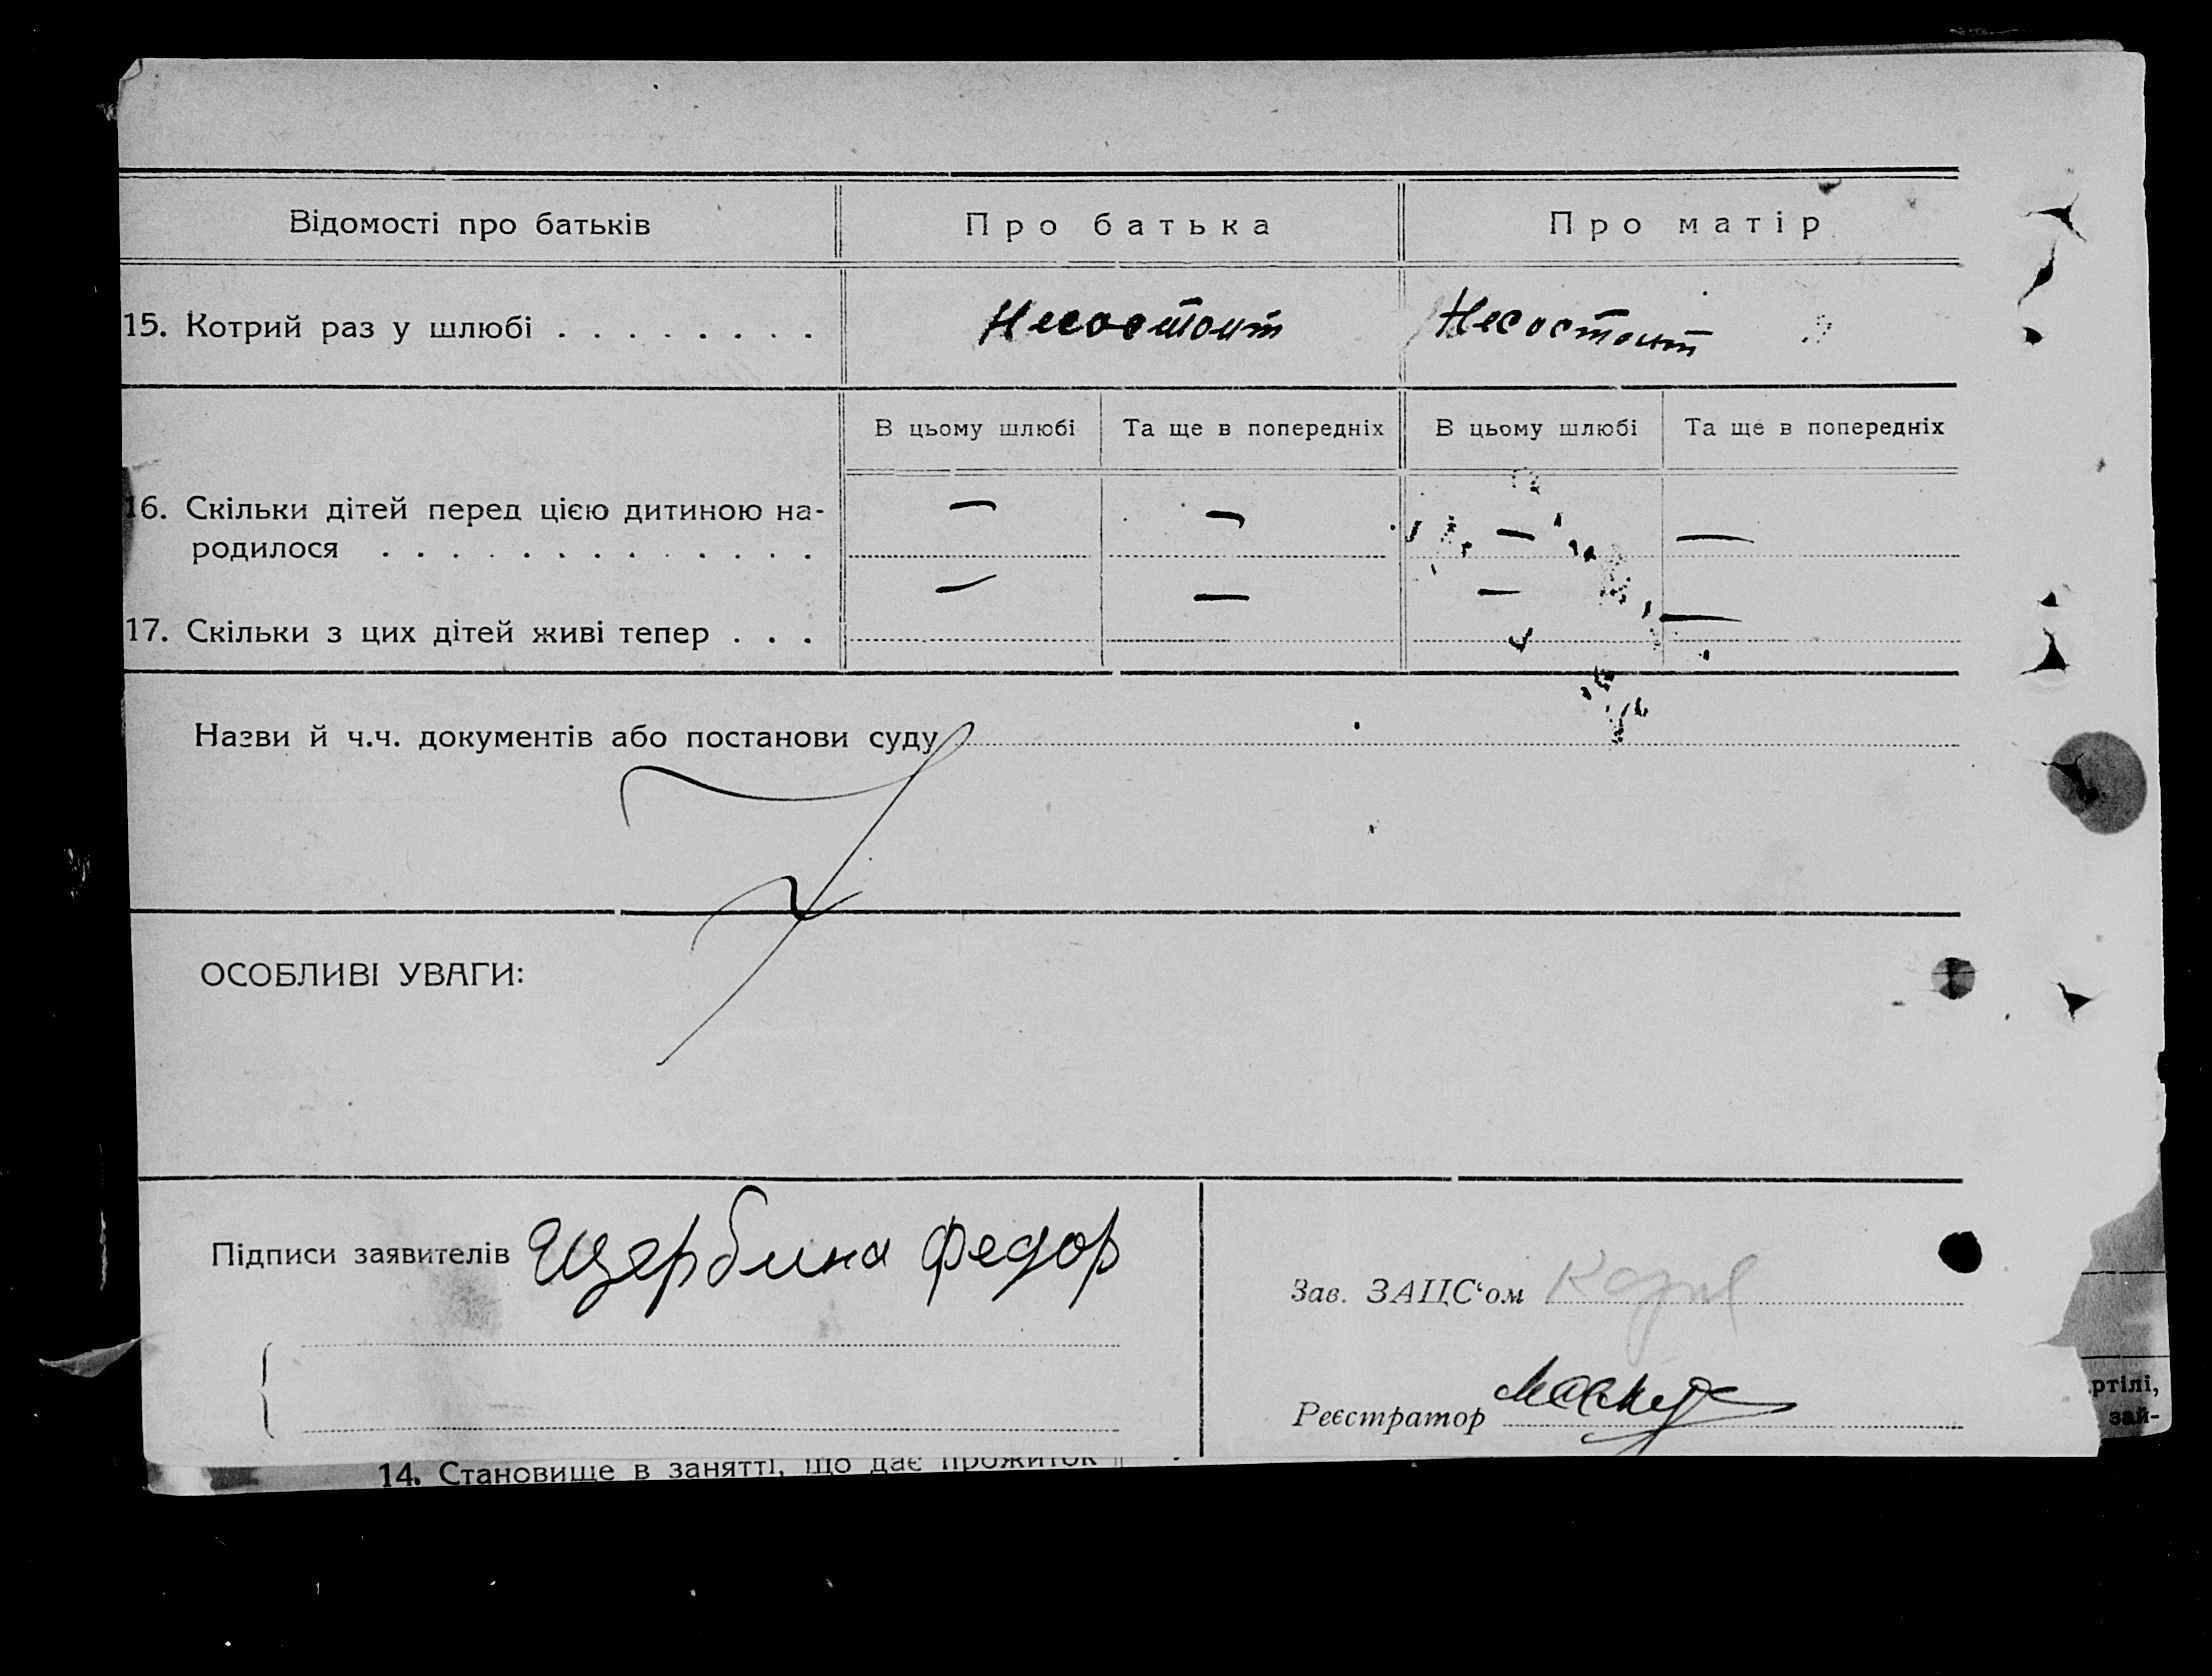 Відомості про батьків
Про батька
Про матір
15. Котрий раз у шлюбі . . . . . . . .
Несостоит
Несостоит
В цьому шлюбі
Та ще в попередніх
В цьому шлюбі
Та ще в попередніх
16. Скільки дітей перед цією дитиною на-
родилося . . . . . . . . . . . . .
— — — —
17. Скільки з цих дітей живі тепер . . .
— — — —
Назви й ч.ч. документів або постанови суду
ОСОБЛИВІ УВАГИ:
Підписи заявителів Щербина Федор
Зав. ЗАЦС‘ом
Реєстратор
ртілі,
зай-
14. Становище в занятті, що дає прожиток